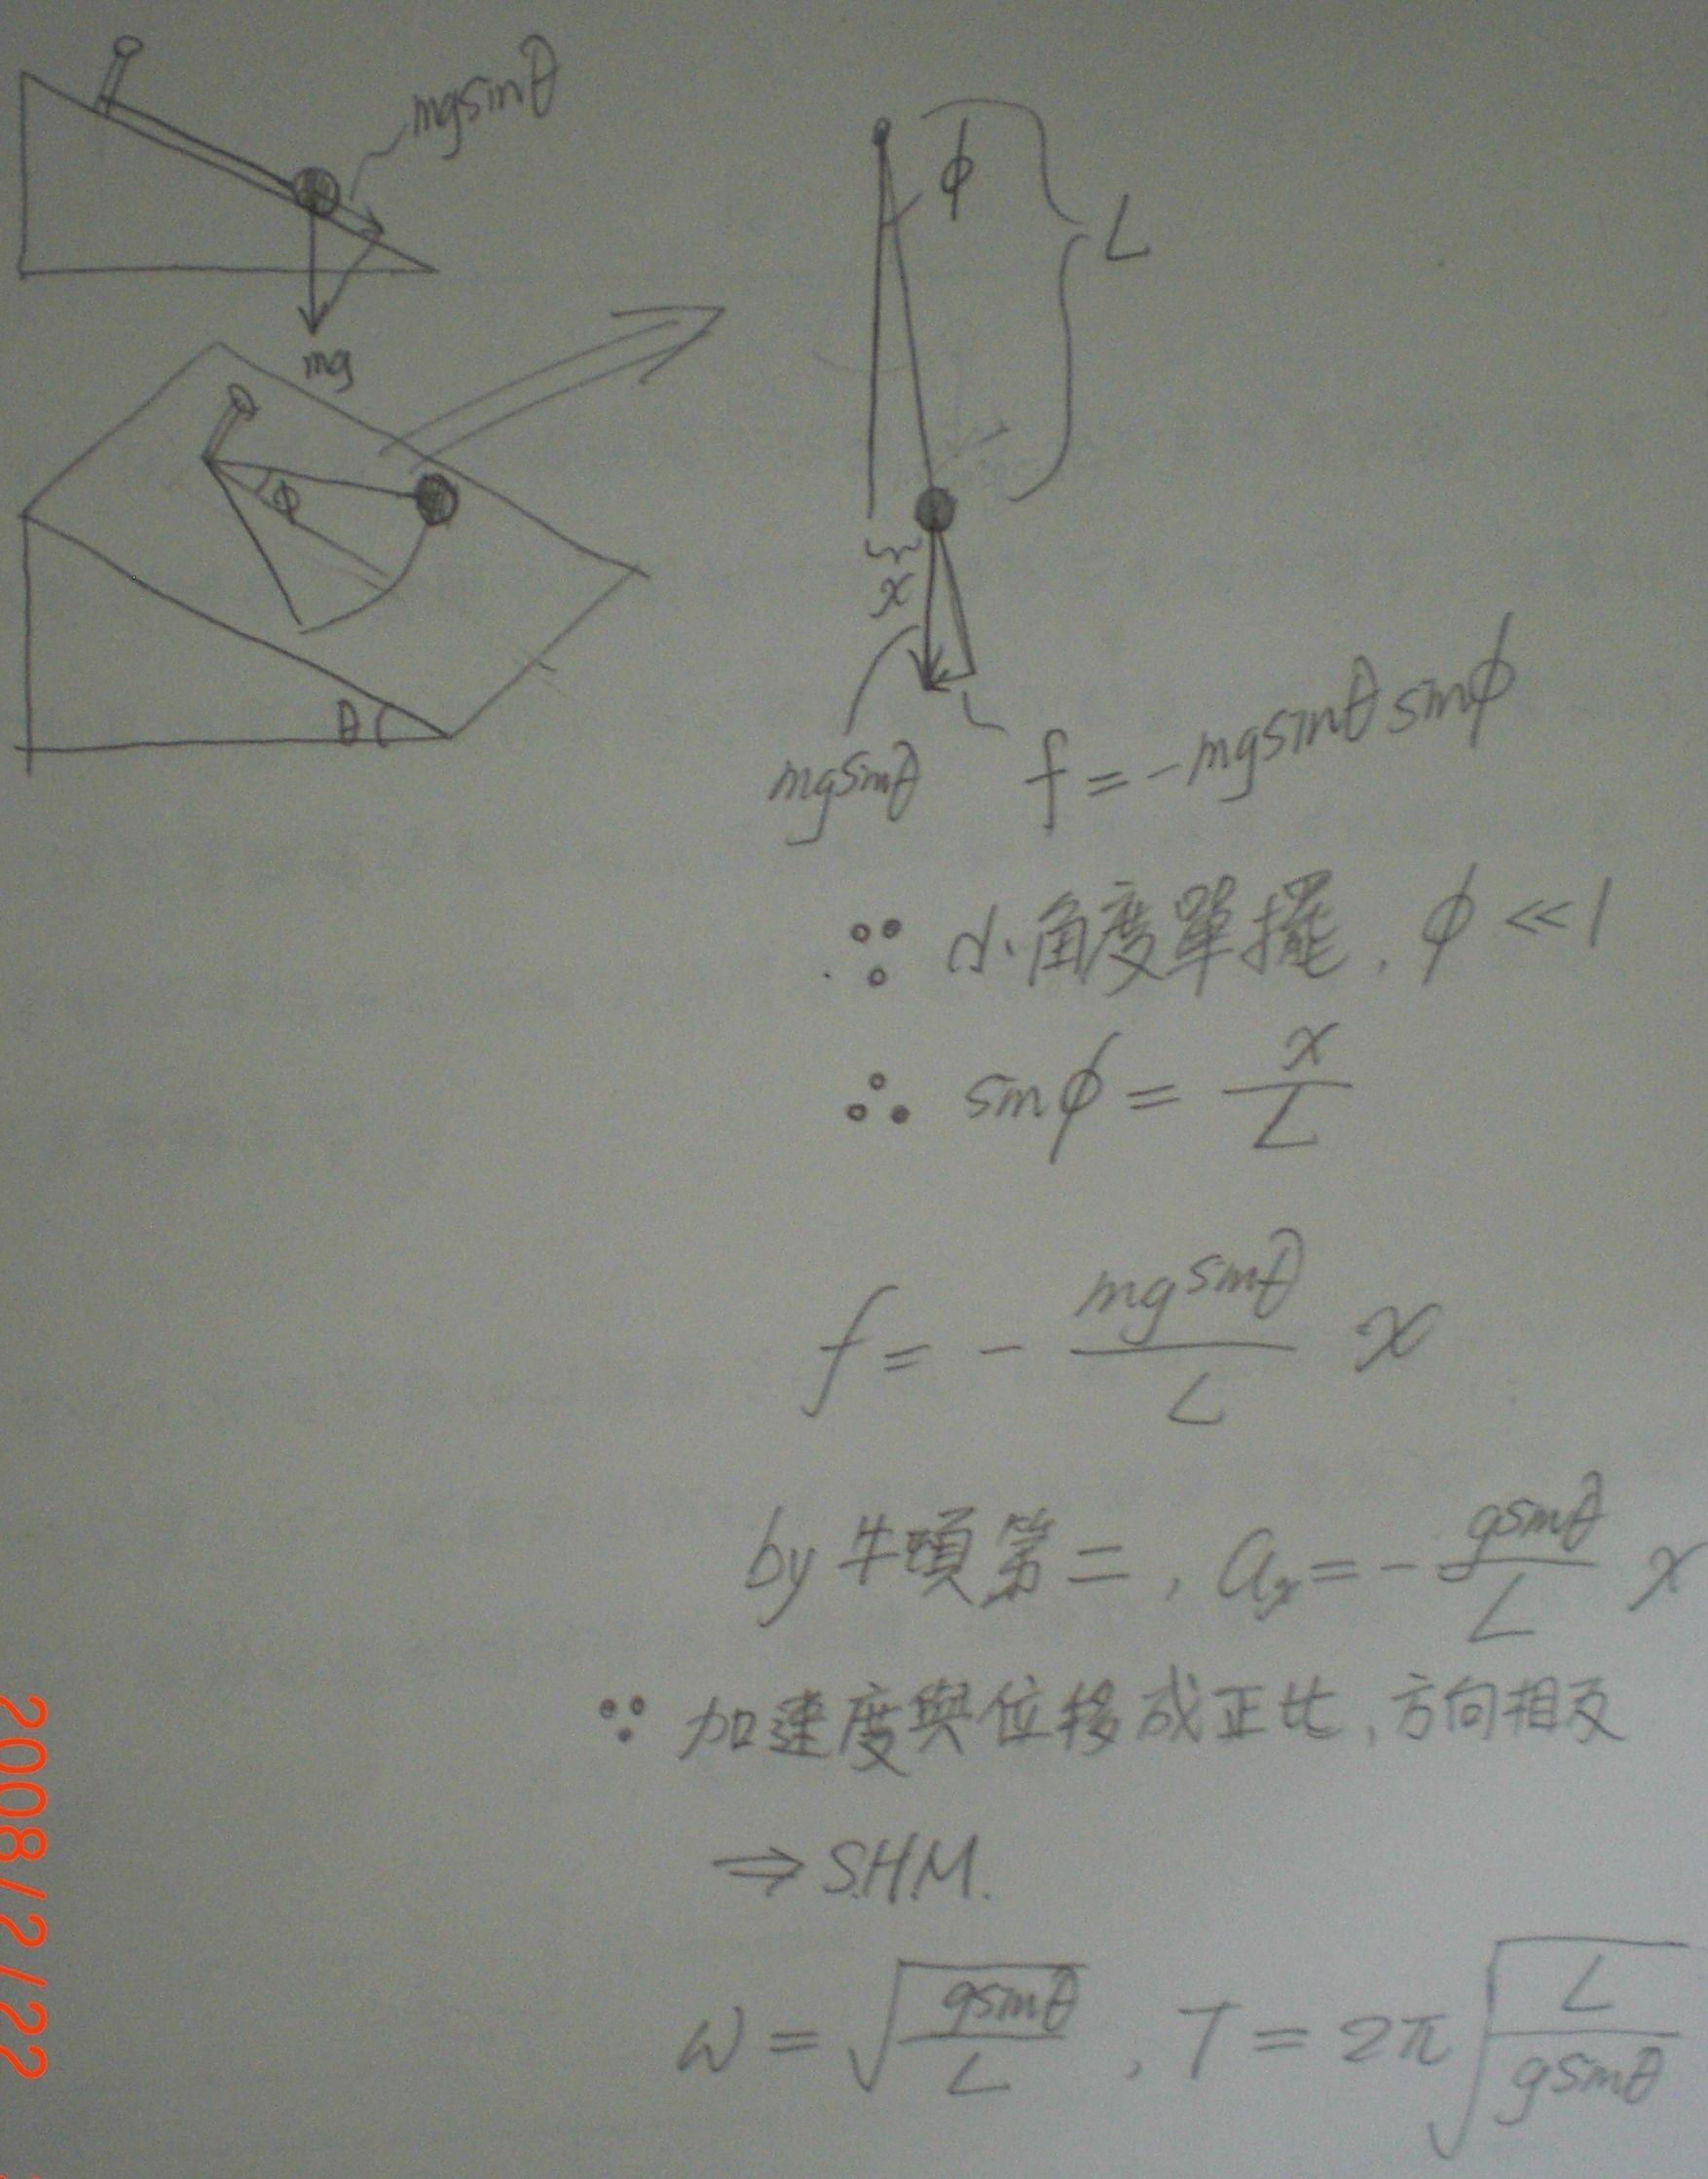 mgsinθ
mg
ϕ
θ
ϕ
L
x
mgsinθ
f = -mgsinθ sinϕ
∵ 小角度單擺, ϕ << 1
∴ sinϕ = x/L
f = - mgsinθ/L x
by 牛頓第二, aₓ = - gsinθ/L x
∵ 加速度與位移成正比, 方向相反
⇒ S.H.M.
ω = √(gsinθ/L) , T = 2π√(L/gsinθ)
2008/2/22